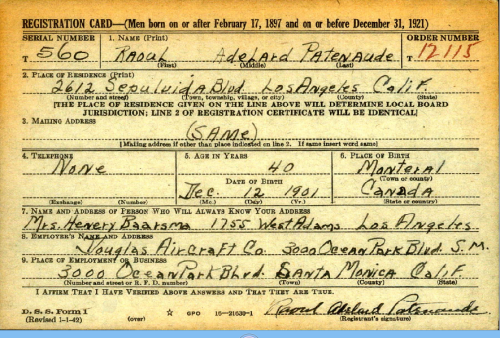 REGISTRATION CARD—(Men born on or after February 17, 1897 and on or before December 31, 1921)
SERIAL NUMBER 1. NAME (Print) ORDER NUMBER
T 560 Raoul Adelard Patenaude T 12115
(First) (Middle) (Last)
2. PLACE OF RESIDENCE (Print)
2612 Sepulvida Blvd. Los Angeles Calif.
(Number and street) (Town, township, village, or city) (County) (State)
[THE PLACE OF RESIDENCE GIVEN ON THE LINE ABOVE WILL DETERMINE LOCAL BOARD
JURISDICTION; LINE 2 OF REGISTRATION CERTIFICATE WILL BE IDENTICAL]
3. MAILING ADDRESS
(SAME)
[Mailing address if other than place indicated on line 2. If same insert word same]
4. TELEPHONE 5. AGE IN YEARS 6. PLACE OF BIRTH
None 40 Monteral
DATE OF BIRTH (Town or county)
Dec. 12 1901 Canada
(Exchange) (Number) (Mo.) (Day) (Yr.) (State or country)
7. NAME AND ADDRESS OF PERSON WHO WILL ALWAYS KNOW YOUR ADDRESS
Mrs. Henery Baarsma 1755 West Adams Los Angeles
8. EMPLOYER'S NAME AND ADDRESS
Douglas Aircraft Co. 3000 Ocean Park Blvd. S.M.
9. PLACE OF EMPLOYMENT OR BUSINESS
3000 Ocean Park Blvd. Santa Monica Calif.
(Number and street or R. F. D. number) (Town) (County) (State)
I AFFIRM THAT I HAVE VERIFIED ABOVE ANSWERS AND THAT THEY ARE TRUE.
D. S. S. Form 1 Raoul Adelard Patenaude
(Revised 1-1-42) (over) ☆ GPO 16—21630-1 (Registrant's signature)